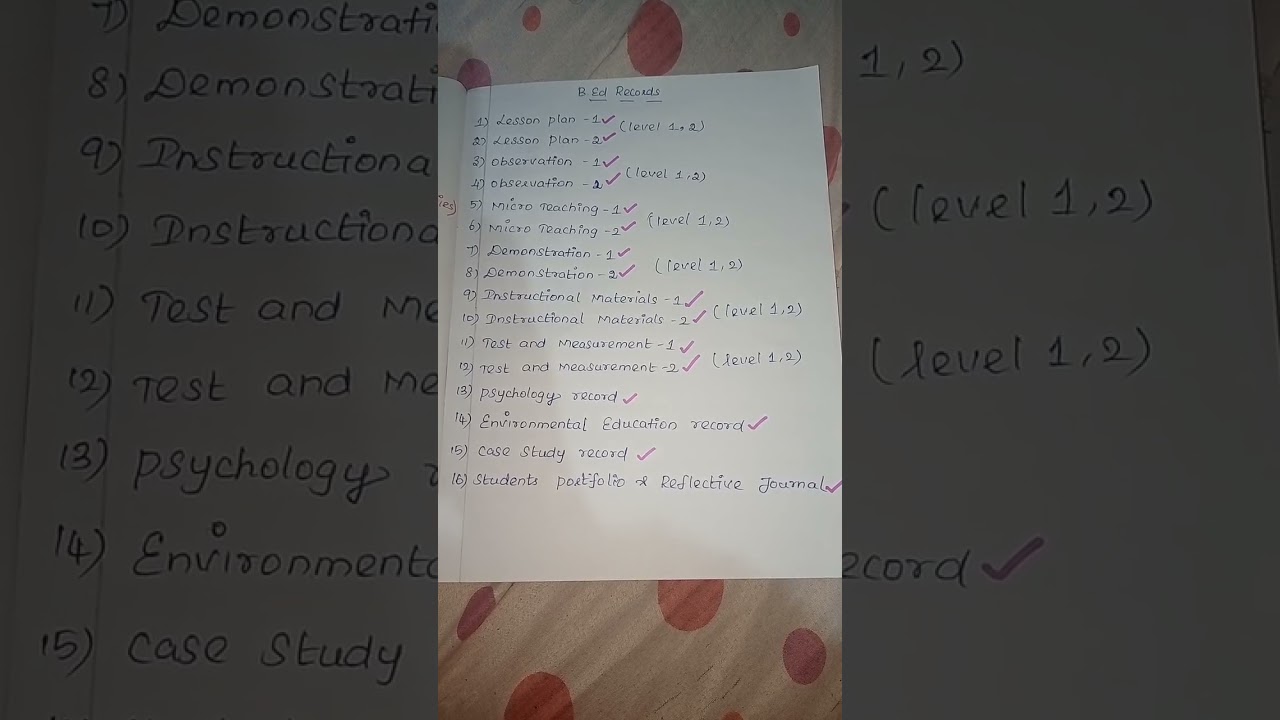 B.Ed Records
1) Lesson plan - 1 ✓
(level 1,2)
2) Lesson plan - 2 ✓
3) Observation - 1 ✓
(level 1,2)
4) Observation - 2 ✓
5) Micro Teaching - 1 ✓
(level 1,2)
6) Micro Teaching - 2 ✓
7) Demonstration - 1 ✓
(level 1,2)
8) Demonstration - 2 ✓
9) Instructional Materials - 1 ✓
(level 1,2)
10) Instructional Materials - 2 ✓
11) Test and Measurement - 1 ✓
(level 1,2)
12) Test and Measurement - 2 ✓
13) Psychology record ✓
14) Environmental Education record ✓
15) Case Study record ✓
16) Students portfolio & Reflective Journal ✓